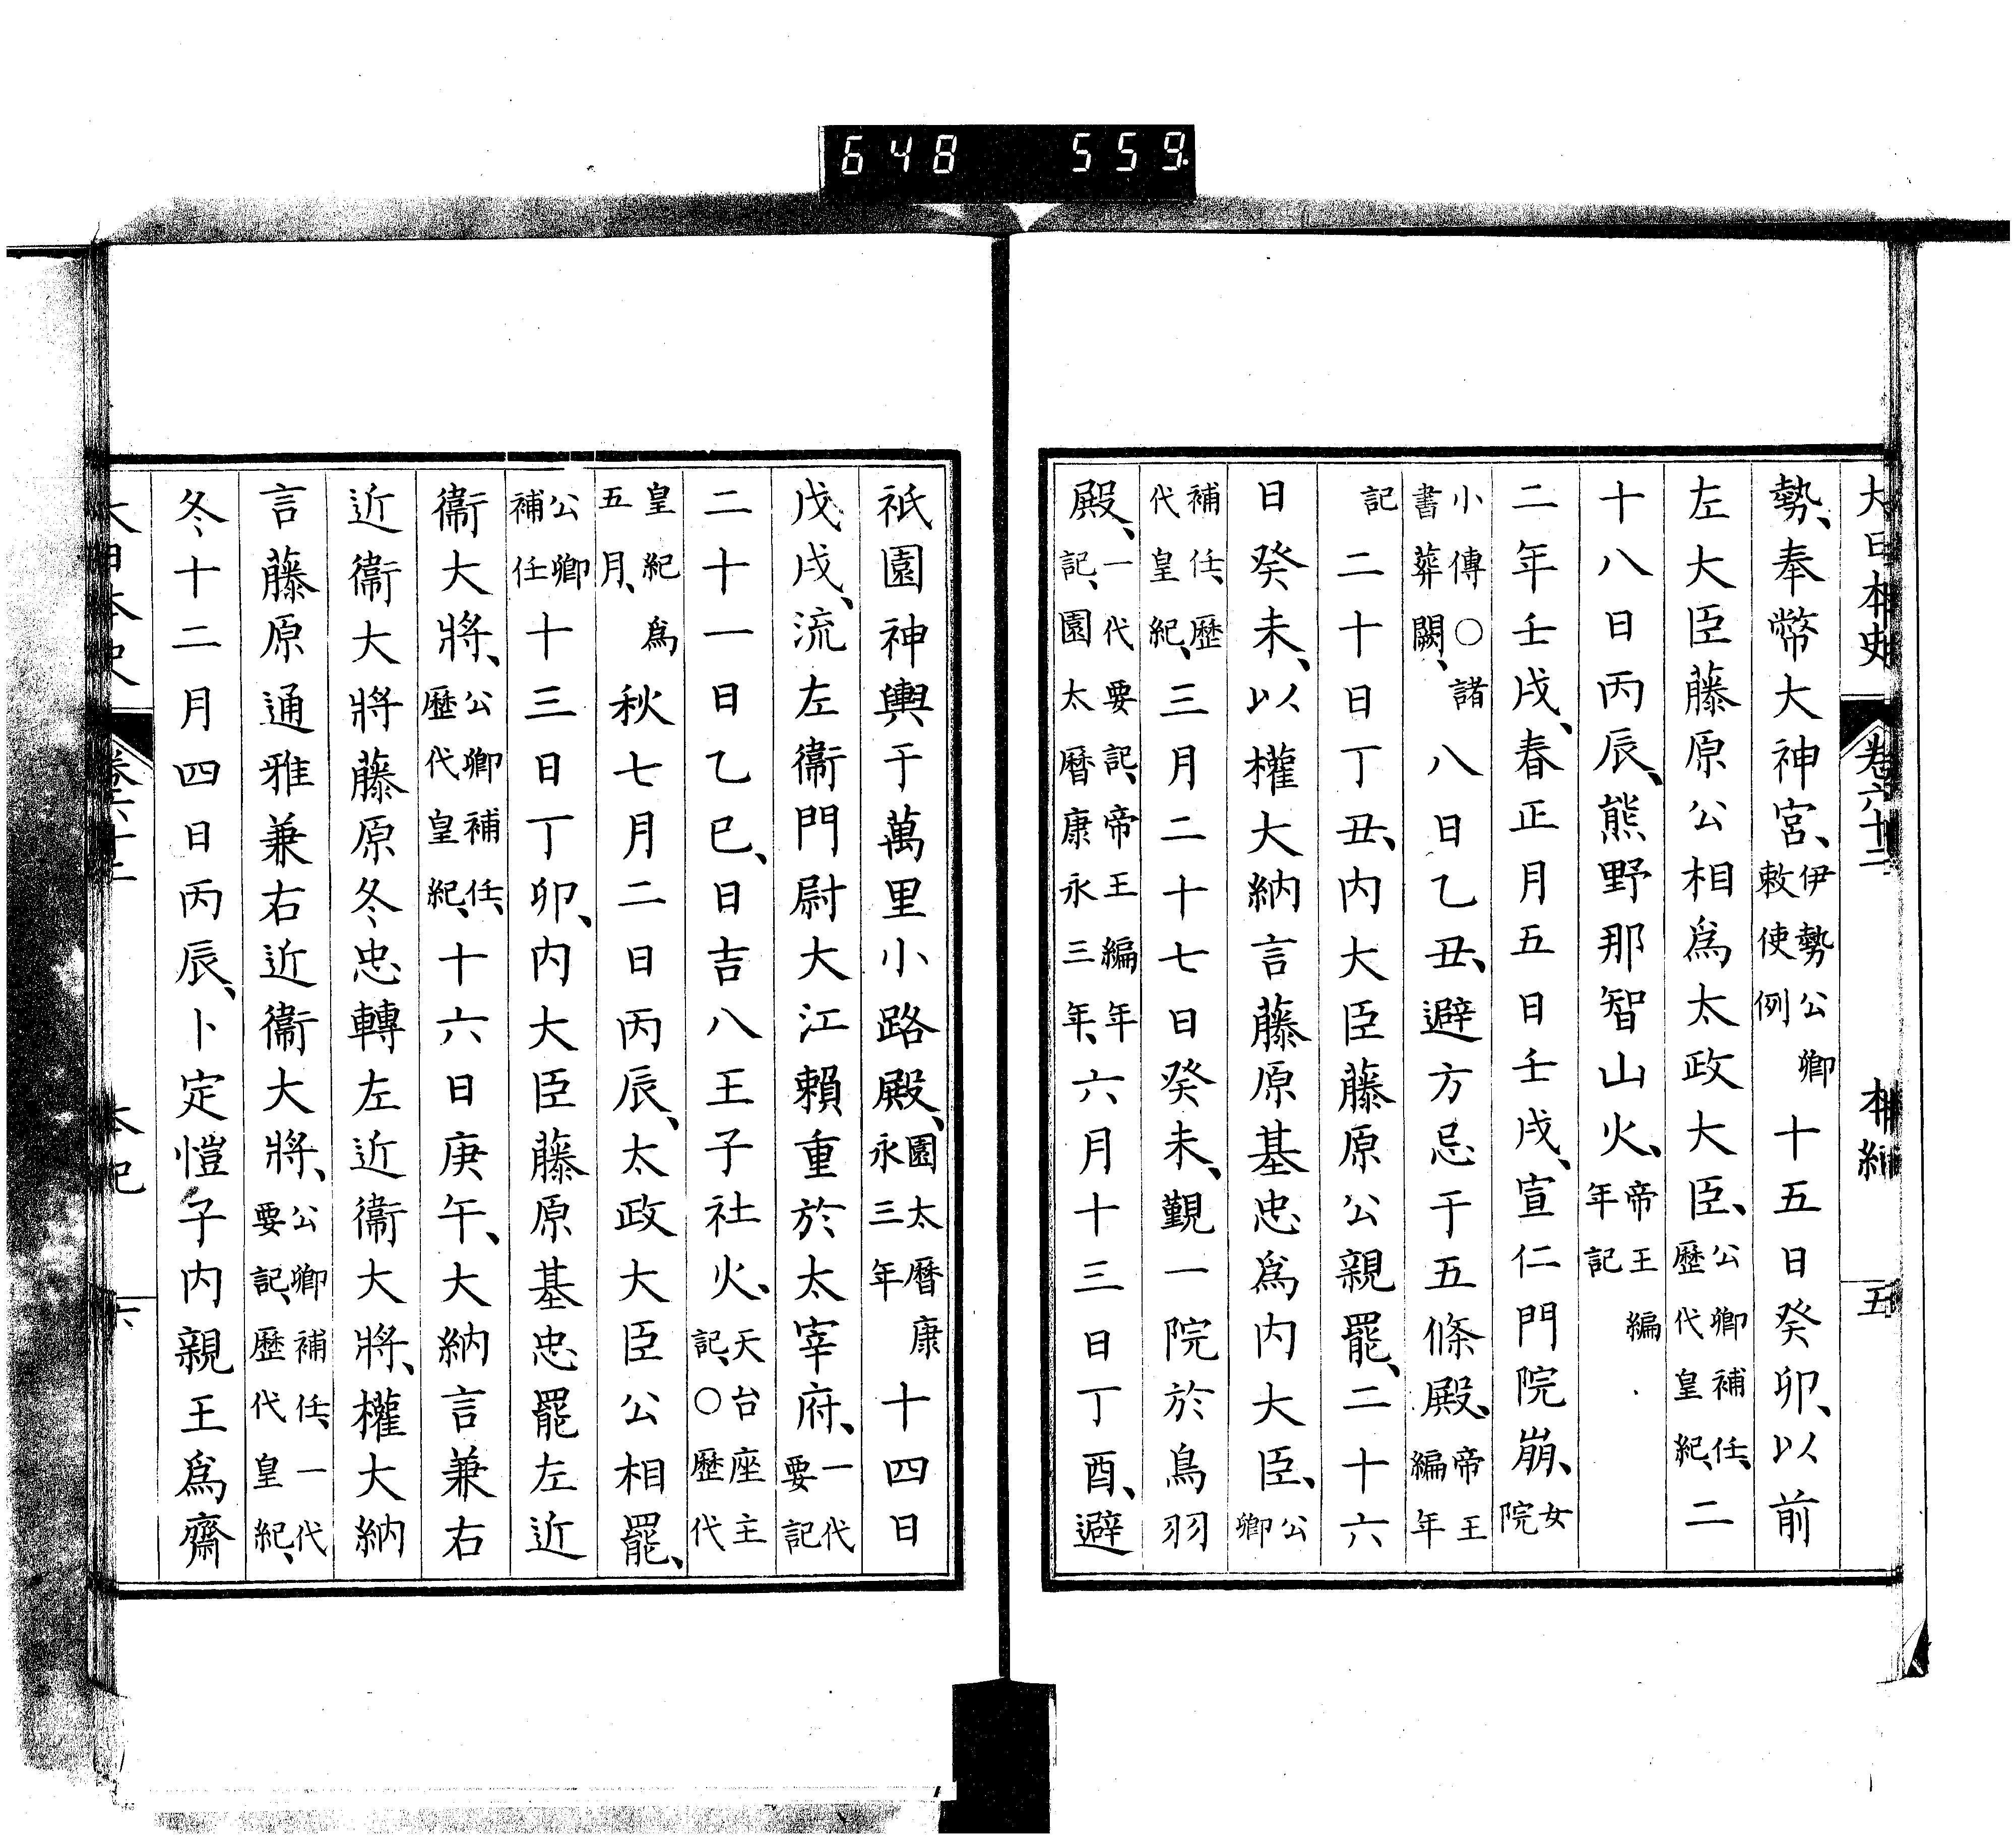 648 559.
大日本史 卷六十二 本紀 五
勢、奉幣大神宮、伊勢公卿勅使例十五日癸卯、以前
左大臣藤原公相爲太政大臣、公卿補任、歷代皇紀、二
十八日丙辰、熊野那智山火、帝王編年記
二年壬戌、春正月五日壬戌、宣仁門院崩、女院
小傳○諸書葬闕、八日乙丑、避方忌于五條殿、帝王編年
記二十日丁丑、内大臣藤原公親罷、二十六
日癸未、以權大納言藤原基忠爲内大臣、公卿
補任、歷代皇紀、三月二十七日癸未、覲一院於鳥羽
殿、一代要記、帝王編年記、園太曆康永三年、六月十三日丁酉、避
祇園神輿于萬里小路殿、園太曆康永三年十四日
戊戌、流左衞門尉大江賴重於太宰府、一代要記
二十一日乙巳、日吉八王子社火、天台座主記、○歷代
皇紀爲五月、秋七月二日丙辰、太政大臣公相罷、
公卿補任十三日丁卯、内大臣藤原基忠罷左近
衞大將、公卿補任、歷代皇紀、十六日庚午、大納言兼右
近衞大將藤原冬忠轉左近衞大將、權大納
言藤原通雅兼右近衞大將、公卿補任、一代要記、歷代皇紀、
冬十二月四日丙辰、卜定愷子内親王爲齋
大日本史 卷六十二 本紀 六